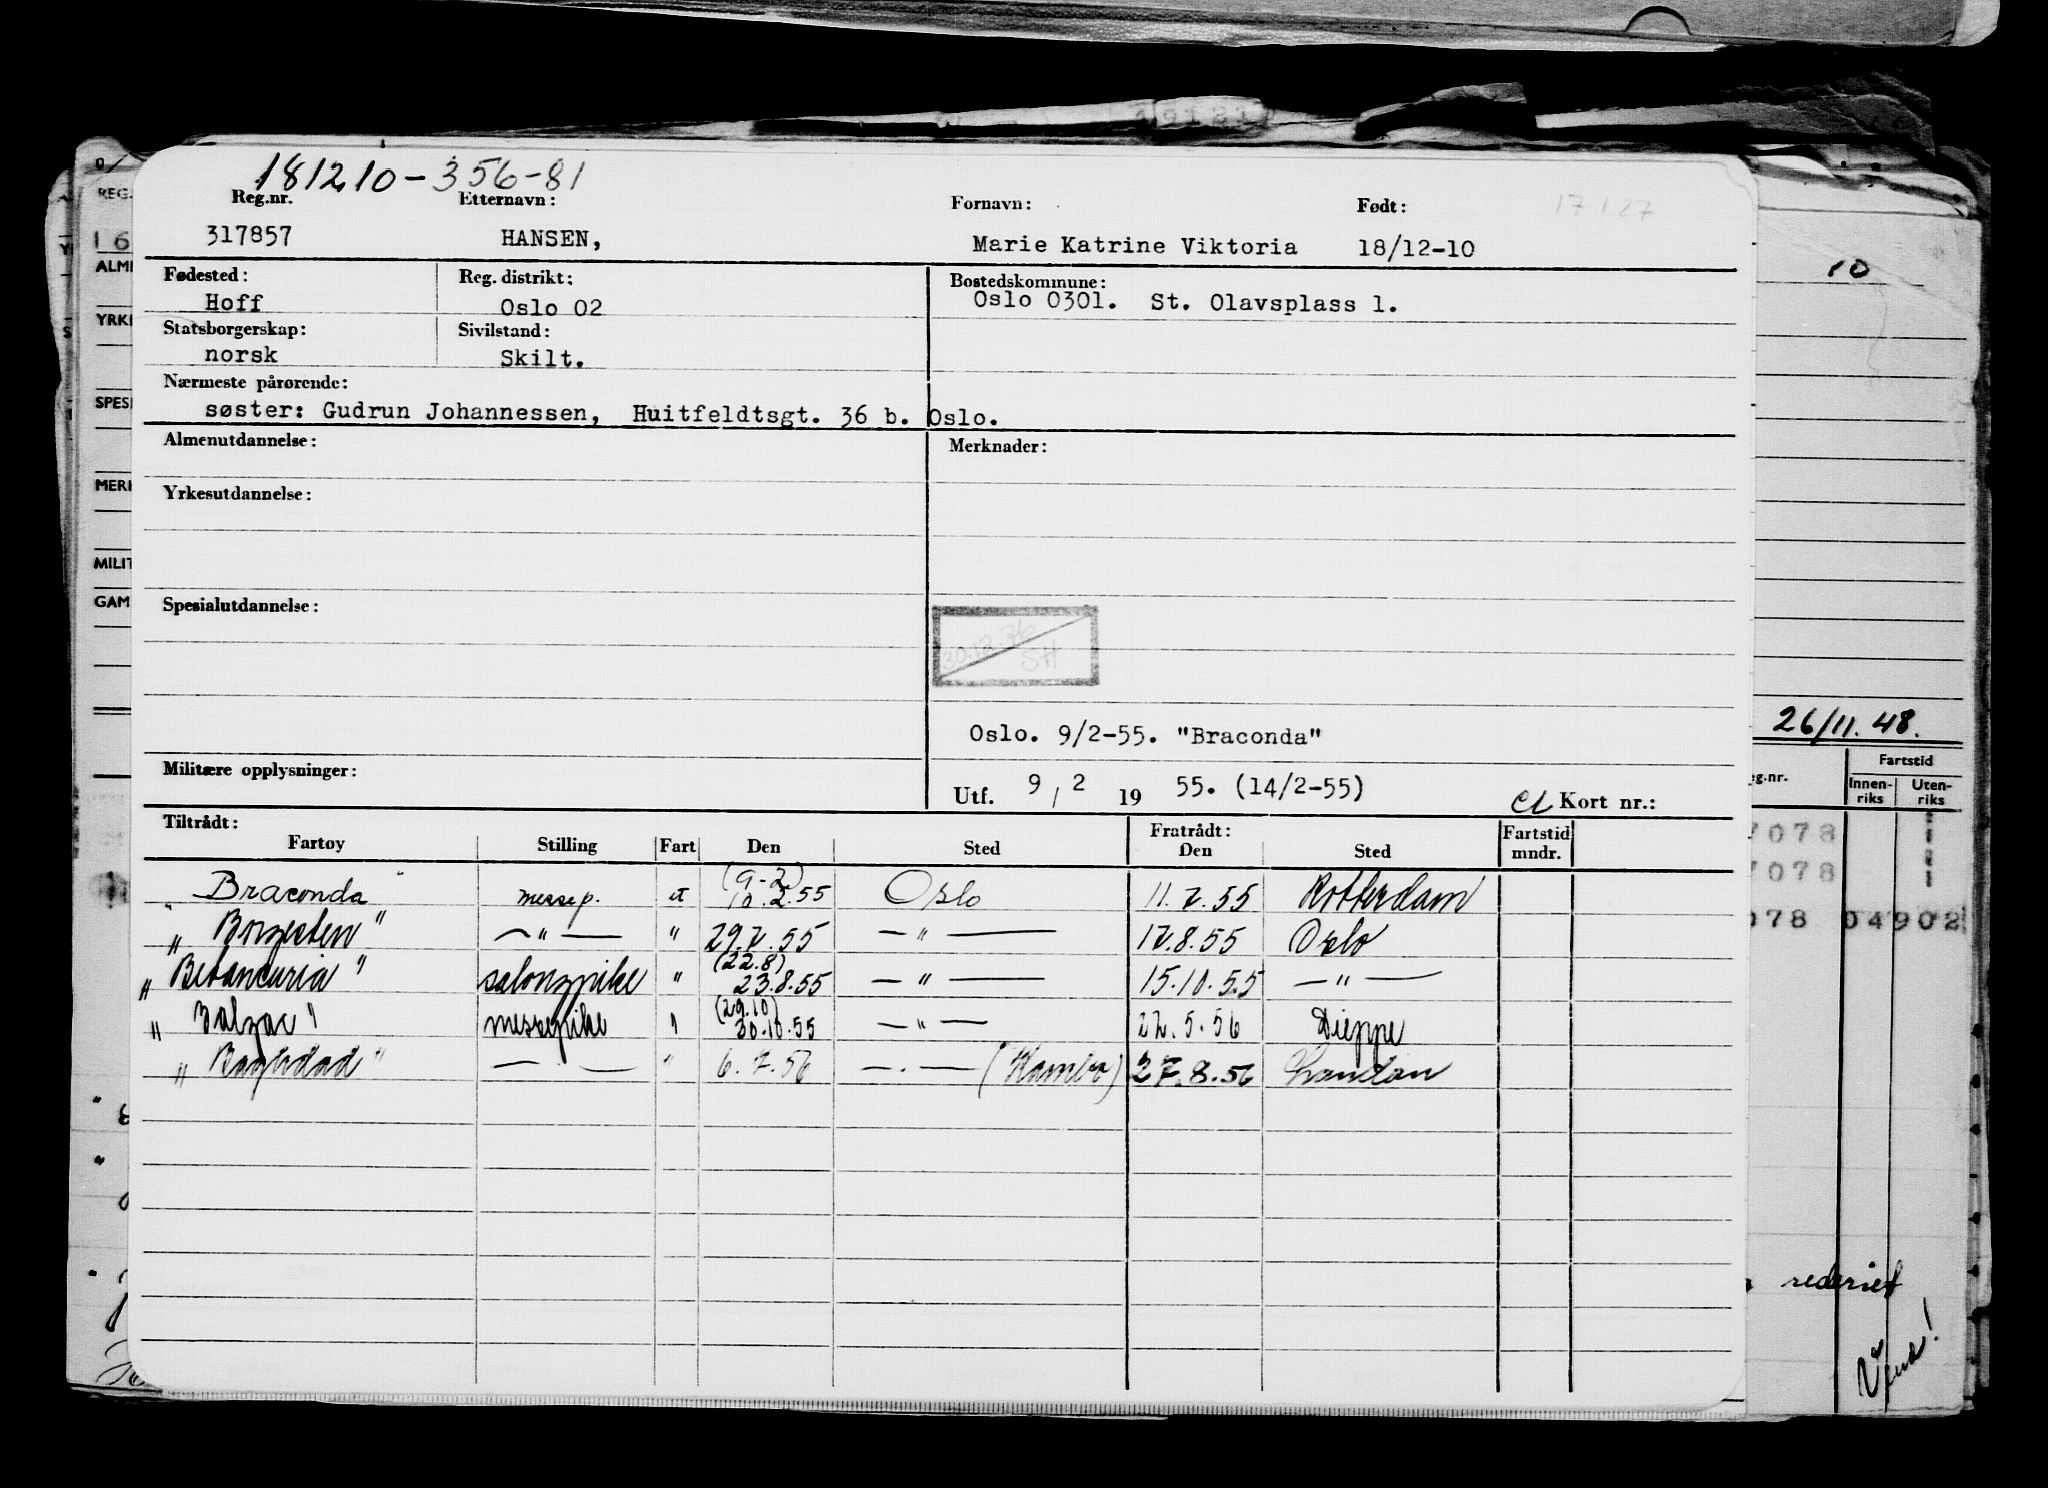 181210-356-81
Reg.nr. Etternavn: Fornavn: Født: 17127
317857 HANSEN, Marie Katrine Viktoria 18/12-10
Fødested: Reg. distrikt: Bostedskommune:
Hoff Oslo 02 Oslo 0301. St. Olavsplass 1.
Statsborgerskap: Sivilstand:
norsk Skilt.
Nærmeste pårørende:
søster: Gudrun Johannessen, Huitfeldtsgt. 36 b. Oslo.
Almenutdannelse: Merknader:
Yrkesutdannelse:
Spesialutdannelse:
30.12.76
SH
Oslo. 9/2-55. "Braconda"
Militære opplysninger:
Utf. 9 / 2 19 55. (14/2-55) Kort nr.:
Tiltrådt: Fratrådt: Fartstid
Fartøy Stilling Fart Den Sted Den Sted mndr.
"Braconda" messep. ut (9-2) 10.2.55 Oslo 11.7.55 Rotterdam
"Borgesten" —"— " 29.7.55 —"— 17.8.55 Oslo
"Betancuria" salongpike " (22.8) 23.8.55 —"— 15.10.55 —"—
"Balzac" messepike " (29.10) 30.10.55 —"— 22.5.56 Dieppe
"Baghdad" —"— " 6.7.56 —"— 27.8.56 London
REG.
16
ALM
YRK
SPES
MER
MILIT
GAM
10
26/11.48.
eg.nr. Fartstid
Innen-riks Uten-riks
7078
7078
078 04902
rederiet
Vend!